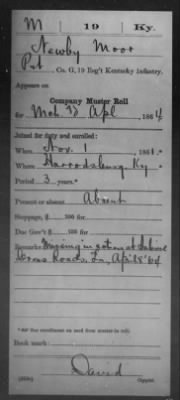 M 19 Ky.
Newby Moor
Pvt, Co. G, 19 Reg't Kentucky Infantry.
Appears on
Company Muster Roll
for Mch & Apl, 1864
Joined for duty and enrolled:
When Nov. 1, 1861.*
Where Harrodsburg, Ky
Period 3 years.*
Present or absent Absent
Stoppage, $ 100 for
Due Gov't $ 100 for
Remarks: Missing in action at Sabine
Cross Roads, La, April 8" 64
Book mark:
David
(858c) Copyist.